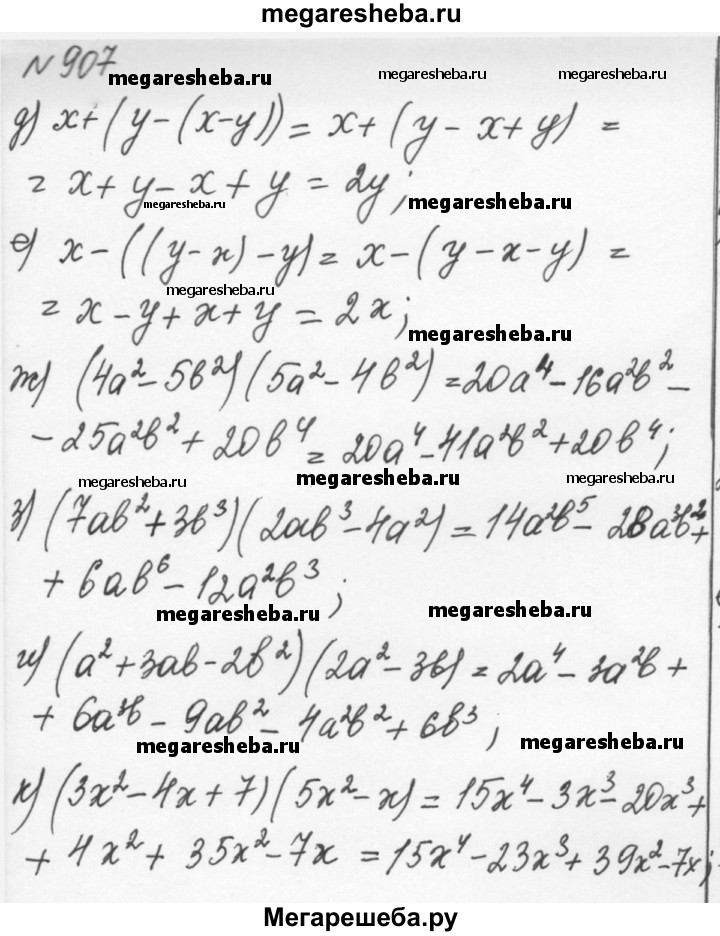 megaresheba.ru
N 907
megaresheba.ru megaresheba.ru megaresheba.ru
д) x+(y-(x-y))= x+(y-x+y) =
= x+y-x+y = 2y;
megaresheba.ru megaresheba.ru
е) x-((y-x)-y)= x-(y-x-y) =
megaresheba.ru
= x-y+x+y = 2x;
megaresheba.ru
ж) (4a²-5b²)(5a²-4b²)=20a⁴-16a²b²-
-25a²b²+20b⁴= 20a⁴-41a²b²+20b⁴;
megaresheba.ru megaresheba.ru megaresheba.ru
з) (7ab²+3b³)(2ab³-4a²)=14a²b⁵-28a³b²+
+6ab⁶-12a²b³;
megaresheba.ru megaresheba.ru
и) (a²+3ab-2b²)(2a²-3b)=2a⁴-3a²b+
+6a³b-9ab²-4a²b²+6b³;
megaresheba.ru megaresheba.ru
к) (3x²-4x+7)(5x²-x)=15x⁴-3x³-20x³+
+4x²+35x²-7x =15x⁴-23x³+39x²-7x;
Мегарешеба.ру